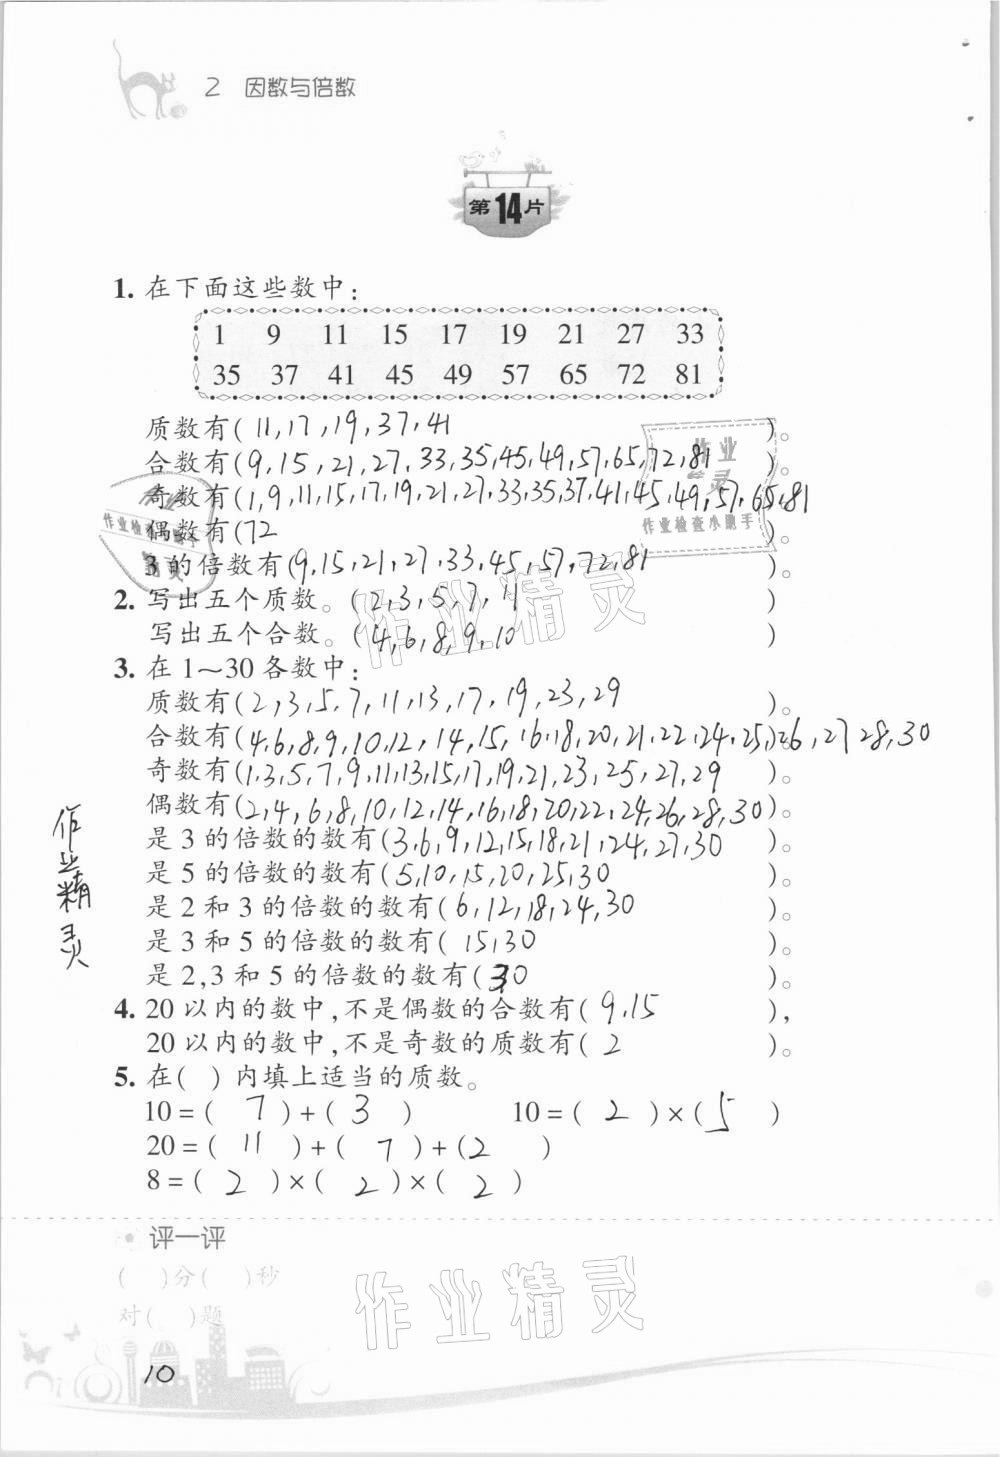 2 因数与倍数
第14片
1. 在下面这些数中:
1 9 11 15 17 19 21 27 33
35 37 41 45 49 57 65 72 81
质数有(11,17,19,37,41)。
合数有(9,15,21,27,33,35,45,49,57,65,72,81)。
奇数有(1,9,11,15,17,19,21,27,33,35,37,41,45,49,57,65,81
偶数有(72)。
3的倍数有(9,15,21,27,33,45,57,72,81)。
2. 写出五个质数。(2,3,5,7,11)
写出五个合数。(4,6,8,9,10)
3. 在1~30各数中:
质数有(2,3,5,7,11,13,17,19,23,29)。
合数有(4,6,8,9,10,12,14,15,16,18,20,21,22,24,25,26,27,28,30
奇数有(1,3,5,7,9,11,13,15,17,19,21,23,25,27,29)。
偶数有(2,4,6,8,10,12,14,16,18,20,22,24,26,28,30)。
是3的倍数的数有(3,6,9,12,15,18,21,24,27,30)。
是5的倍数的数有(5,10,15,20,25,30)。
是2和3的倍数的数有(6,12,18,24,30)。
是3和5的倍数的数有(15,30)。
是2,3和5的倍数的数有(30)。
4. 20以内的数中,不是偶数的合数有(9,15),
20以内的数中,不是奇数的质数有(2)。
5. 在( )内填上适当的质数。
10=(7)+(3) 10=(2)×(5)
20=(11)+(7)+(2)
8=(2)×(2)×(2)
作业精灵
评一评
( )分( )秒
对( )题
10
作业精灵
作业精灵
作业检查小助手